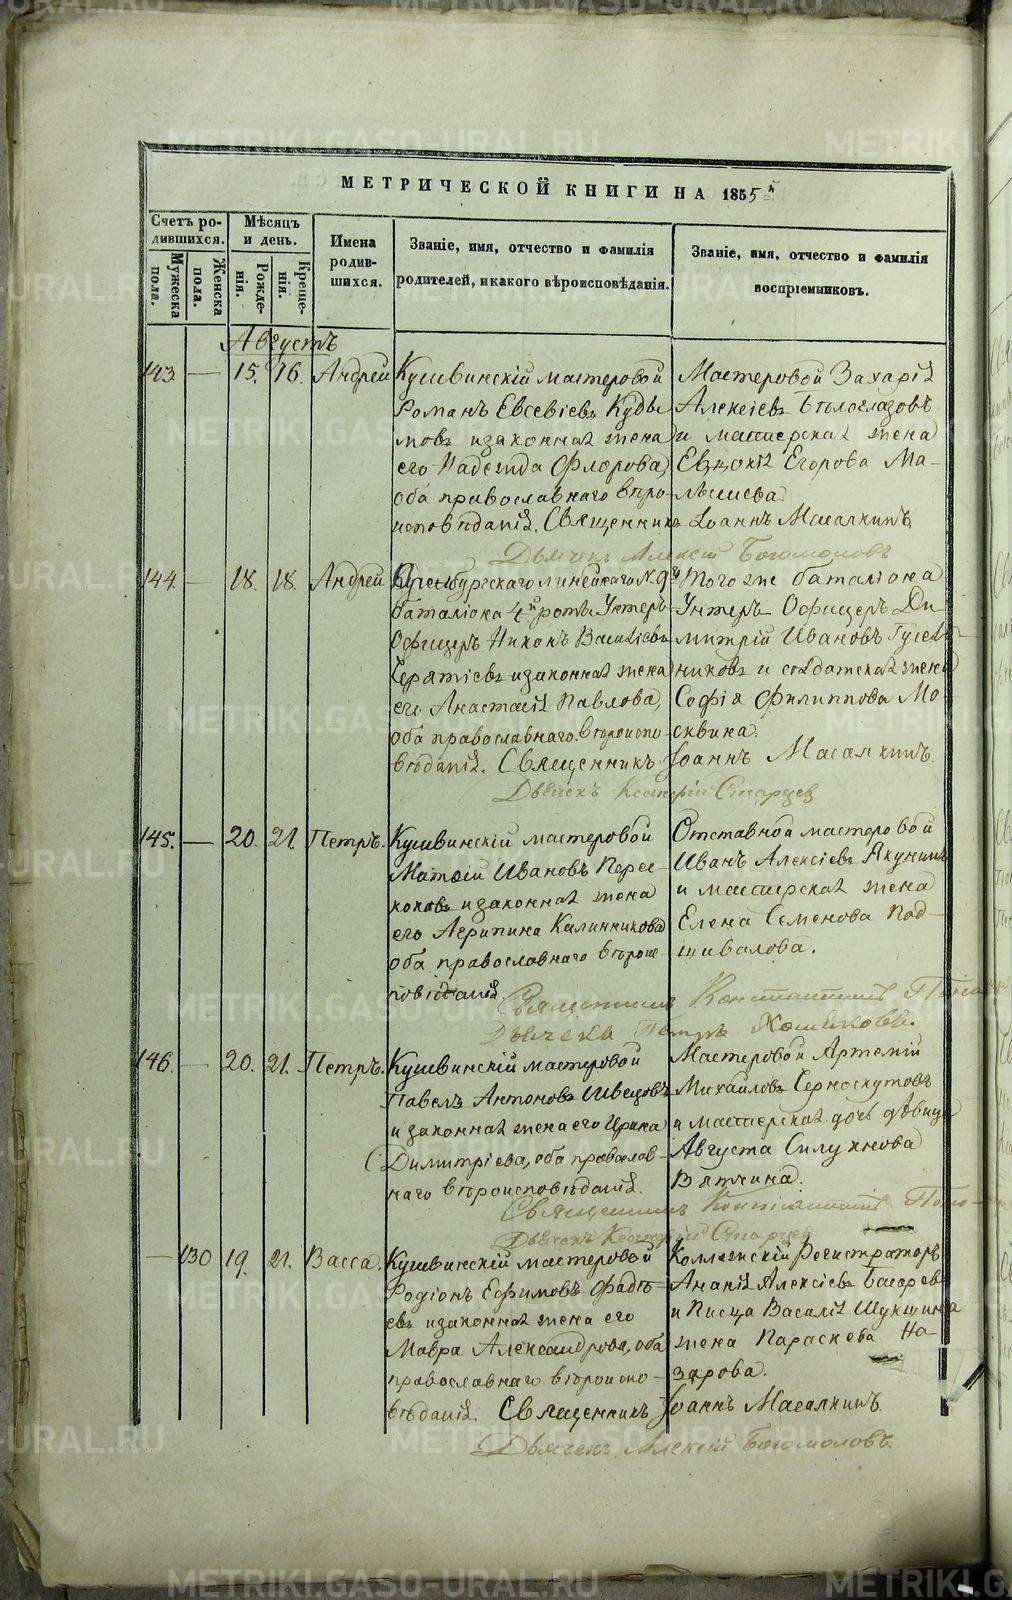 МЕТРИЧЕСКОЙ КНИГИ НА 1855й
Счетъ ро-
дившихся.
Мужеска
пола.
Женска
пола.
Мѣсяцъ
и день.
Рожде-
нія.
Креще-
нія.
Имена
родив-
шихся.
Званіе, имя, отчество и фамилія
родителей, и какого вѣроисповѣданія.
Званіе, имя, отчество и фамилія
воспріемниковъ.
Августъ
143. — 15. 16. Андрей
Кушвинскій мастеровой
Романъ Евсевіевъ Куды-
мовъ и законная жена
его Надежда Флорова,
оба православнаго вѣро-
исповѣданія. Священникъ Іоаннъ Масалкинъ
Мастеровой Захарія
Алексіевъ Бѣлоглазовъ
и мастерская жена
Евдокія Егорова Ма-
лышева.
Дьячекъ Алексій Богомоловъ
144. — 18. 18. Андрей
Оренбургскаго линѣйнаго № 9й
баталіона 4й роты Унтеръ
Офицеръ Никонъ Василіевъ
и законная жена
его Анастасія Павлова,
оба православнаго вѣроиспо-
вѣданія. Священникъ Іоаннъ Масалкинъ.
Того же баталіона
Унтеръ Офицеръ Ди-
митрій Ивановъ Гусель-
никовъ и солдатская жена
Софія Филиппова Мо-
сквина.
Дьячекъ Старцев
145. — 20. 21. Петръ.
Кушвинскій мастеровой
Матѳій Ивановъ Перес-
коковъ и законная жена
его Агрипина Калинникова
оба православнаго вѣроис-
повѣданія.
Отставной мастеровой
Иванъ Алексіевъ Якунинъ
и мастерская жена
Елена Семенова Под-
шивалова.
Священникъ Константинъ
Дьячекъ Петръ Хомяковъ.
146. — 20. 21. Петръ.
Кушвинскій мастеровой
Павелъ Антоновъ Швецовъ
и законная жена его Ирина
Димитріева, оба православ-
наго вѣроисповѣданія.
Мастеровой Артемій
Михайловъ Серноскутовъ
и мастерская дочь дѣвица
Августа Силуянова
Вятчина.
Священникъ Константинъ
Дьячекъ Старцев
— 130 19. 21. Васса.
Кушвинскій мастеровой
Родіонъ Ефимовъ Фадѣ-
евъ и законная жена его
Мавра Александрова, оба
православнаго вѣроиспо-
вѣданія. Священникъ Іоаннъ Масалкинъ.
Коллежскій Регистраторъ
Ананія Алексіевъ Басарев
и Писца Василія Шукшина
жена Параскева На-
зарова.
Дьячекъ Алексій Богомоловъ.
METRIKI.GASO-URAL.RU